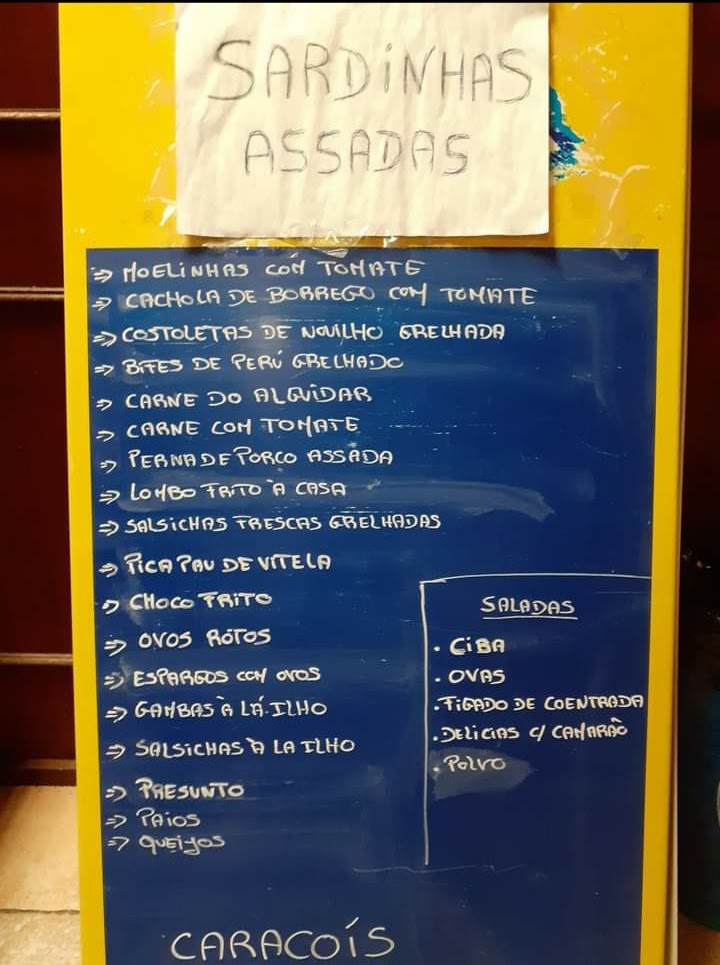 SARDINHAS
ASSADAS
⇒ MOELINHAS COM TOMATE
⇒ CACHOLA DE BORREGO COM TOMATE
⇒ COSTOLETAS DE NOVILHO GRELHADA
⇒ BIFES DE PERÚ GRELHADO
⇒ CARNE DO ALGUIDAR
⇒ CARNE COM TOMATE
⇒ PERNA DE PORCO ASSADA
⇒ LOMBO FRITO À CASA
⇒ SALSICHAS FRESCAS GRELHADAS
⇒ PICA PAU DE VITELA
⇒ CHOCO FRITO
⇒ OVOS RÓTOS
⇒ ESPARGOS COM OVOS
⇒ GAMBAS À LÁ.ILHO
⇒ SALSICHAS À LA ILHO
⇒ PRESUNTO
⇒ PAIOS
⇒ QUEIJOS
SALADAS
. CIBA
. OVAS
. FIGADO DE COENTRADA
. DELICIAS C/ CAMARÃO
. POLVO
CARACOÍS